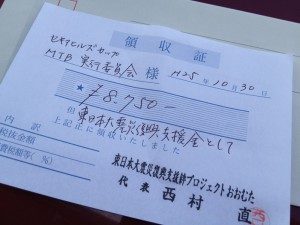 領収証
ヒキヤヒルズカップ
MTB 実行委員会 様 H25年10月30日
★ ¥8,750-
但 東日本大震災復興支援金として
上記正に領収いたしました
内訳
税抜金額
消費税額等(%)
東日本大震災復興支援絆プロジェクトおおむた
代表 西村 直